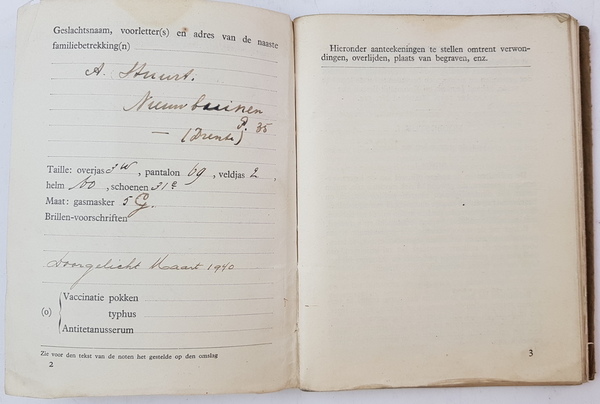 Geslachtsnaam, voorletter(s) en adres van de naaste
familiebetrekking(n)
A. Stuurt.
Nieuw Buinen
P. 35
(Drente)
Taille: overjas , pantalon 69, veldjas 2,
helm 60, schoenen
Maat: gasmasker 5 G.
Brillen-voorschriften
Doorgelicht Maart 1940
(0) Vaccinatie pokken
typhus
Antitetanusserum
Zie voor den tekst van de noten het gestelde op den omslag
2
Hieronder aanteekeningen te stellen omtrent verwon-
dingen, overlijden, plaats van begraven, enz.
3